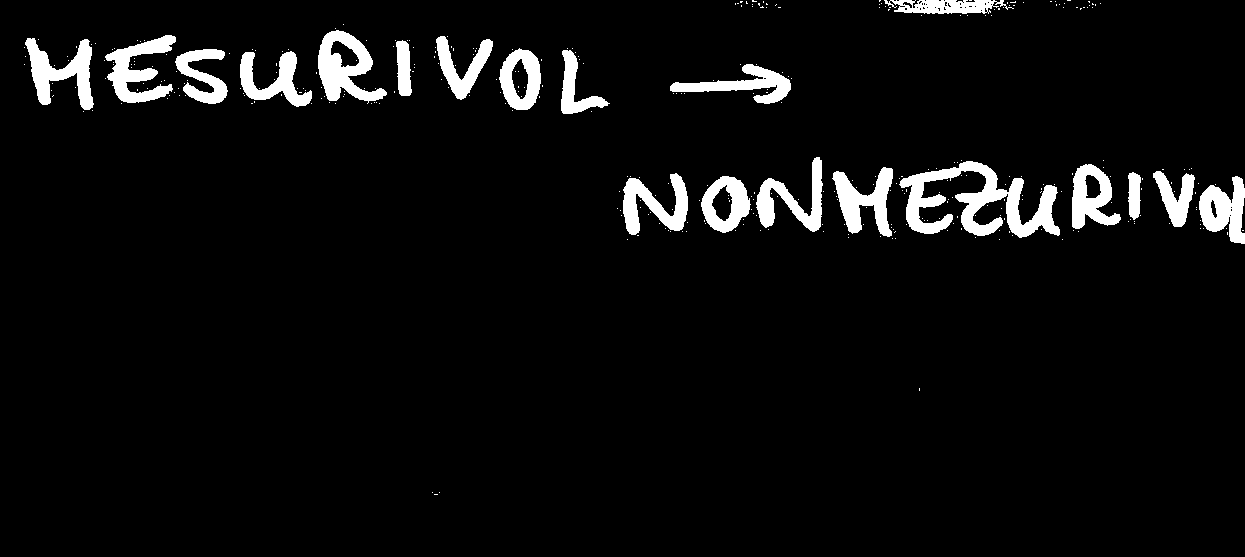 MESURIVOL →
NONMEZURIVOL